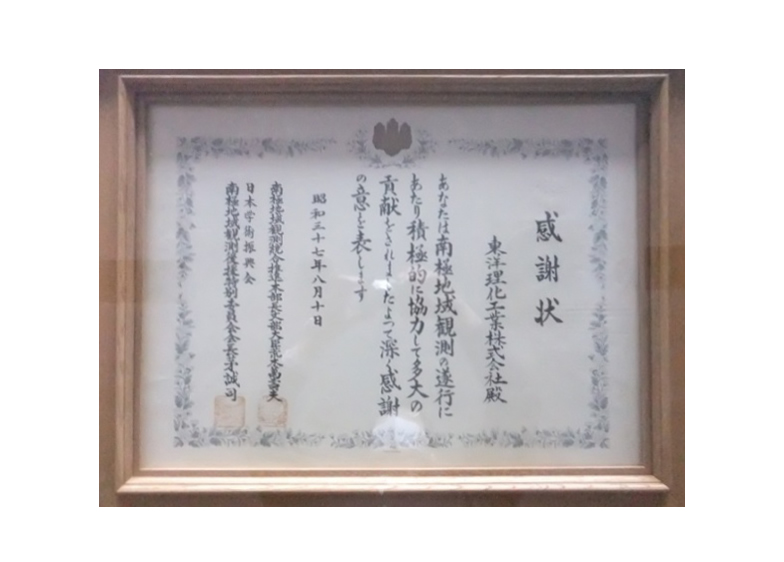 感謝状
東洋理化工業株式会社殿
あなたは南極地域観測の遂行に
あたり積極的に協力して多大の
貢献をされましたよつて深く感謝
の意を表します
昭和三十七年八月十日
南極地域観測統合推進本部長文部大臣荒木萬壽夫
日本学術振興会
南極地域観測後援特別委員会会長茅誠司